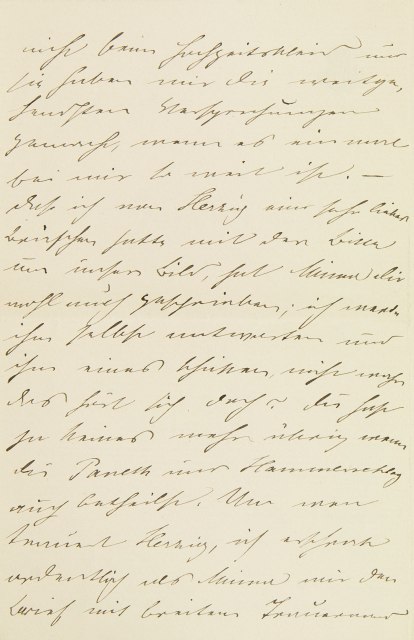 nicht beim Hochzeitskleid und
sie haben mir die weitge,
hendsten Versprechungen
gemacht, wenn es einmal
bei mir so weit ist. —
daß ich von Herzig ein sehr liebes
Briefchen hatte mit der Bitte
um unser Bild, hat Minna dir
wohl auch geschrieben; ich werde
ihm selbst antworten und
ihm eines schicken, nicht wahr
das hört sich doch? du hast
ja keines mehr übrig wenn
du Paneth und Hammerschlag
auch betheilst. Um wen
trauert Herzig, ich erschrak
ordentlich als Minna mir den
Brief mit breitem Trauerrand